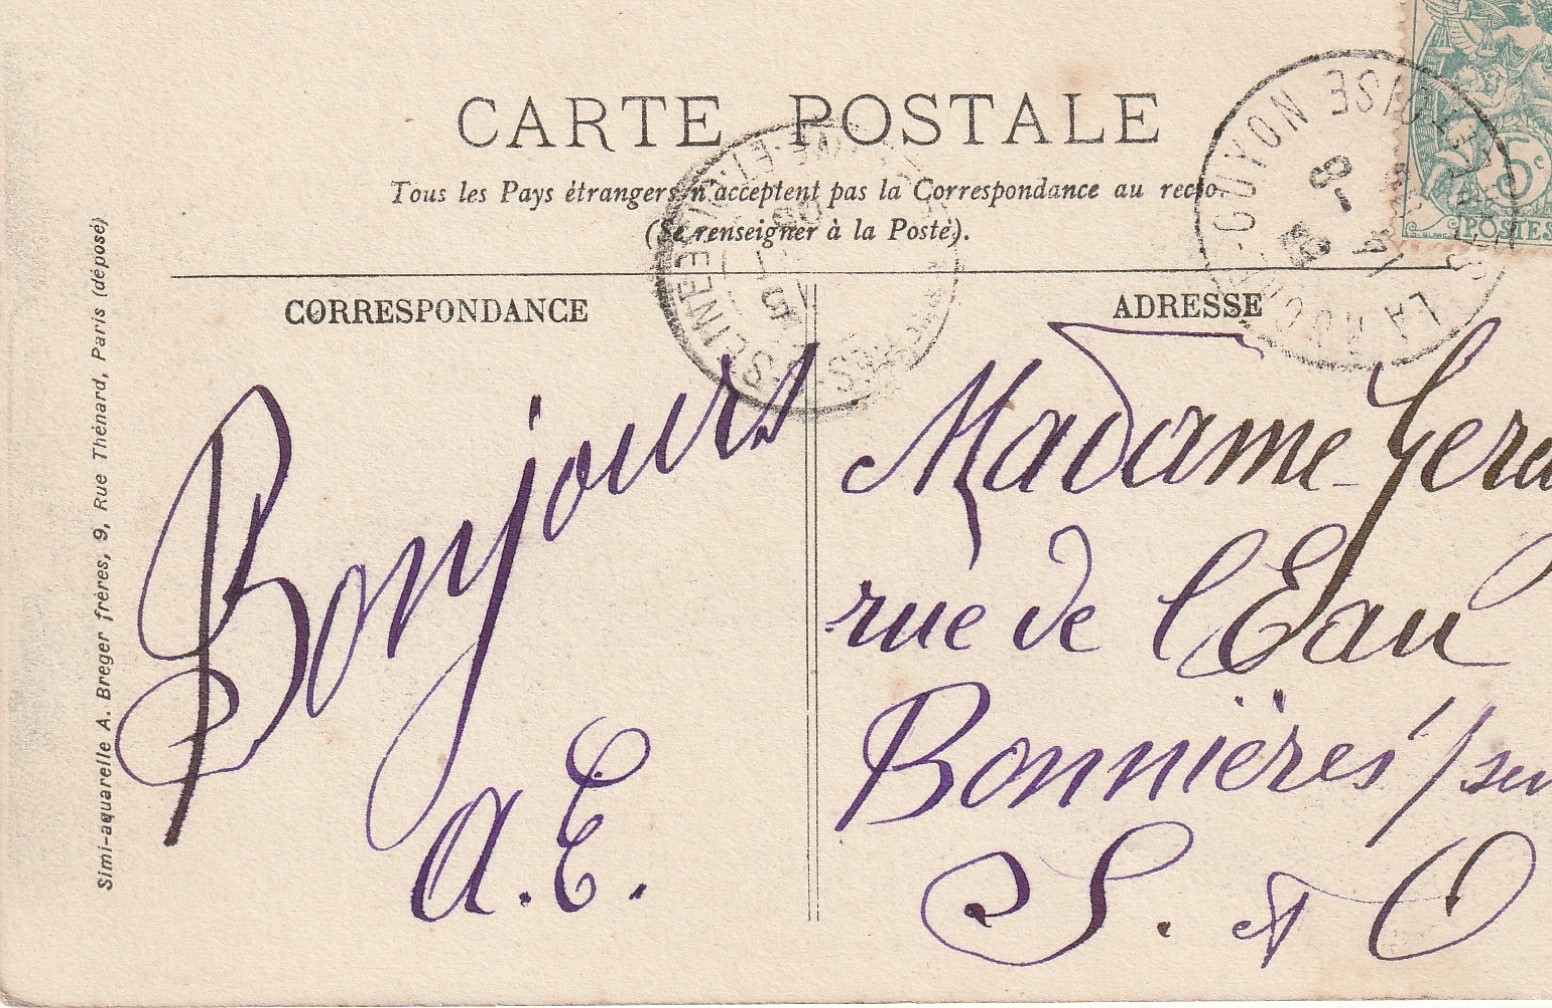 CARTE POSTALE
Tous les Pays étrangers n'acceptent pas la Correspondance au recto
(Se renseigner à la Poste).
CORRESPONDANCE
ADRESSE
Bonjours
A. E.
Madame
rue de l'Eau
Bonnières / sur
S. et O
Simi-aquarelle A. Breger frères, 9, Rue Thénard, Paris (déposé)
LA ROCHE-GUYON
SEINE-ET-OISE
5c
POSTES